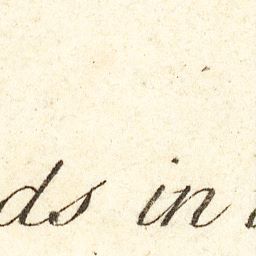 ds in